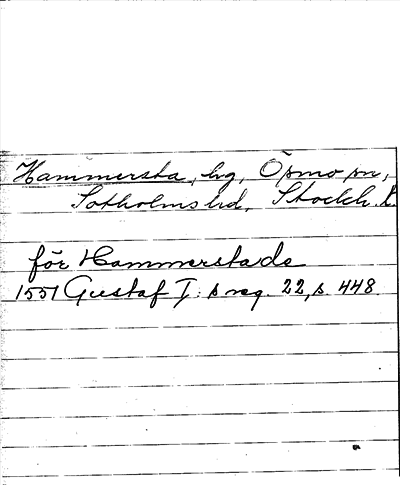 Hammersta, hg, Ösmo sn,
Sotholms hd, Stockh. l.
för Hammerstade
1551 Gustaf I:s reg. 22, s. 448